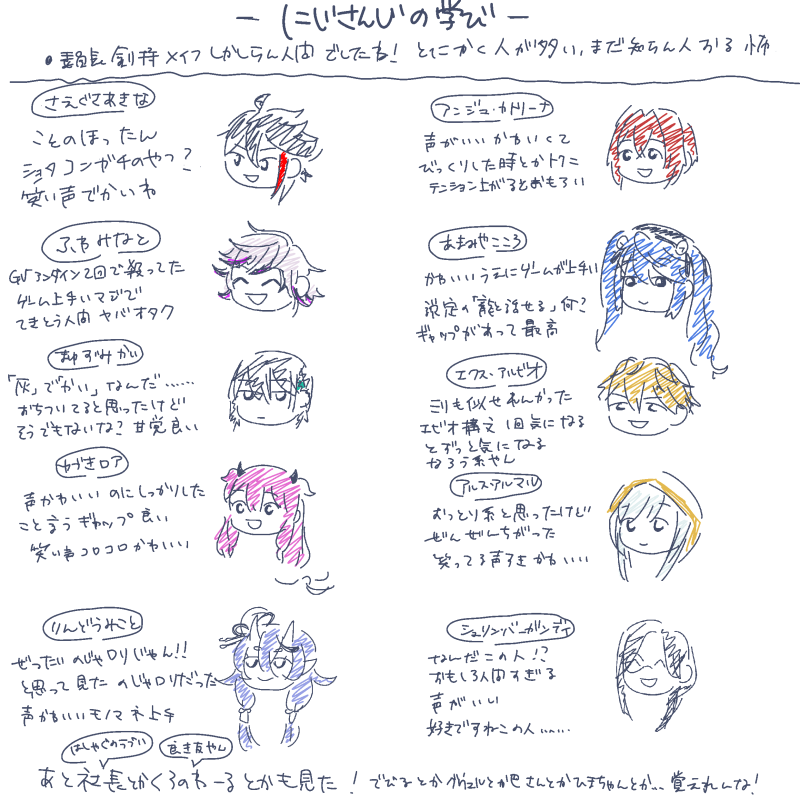 - にじさんじの学び -
・委員長 剣持 メイフ しかしらん人間 でしたね! とにかく人が多い, まだ知らん人おる 怖
さえぐさあきな
ことのほったん
ショタコンガチのやつ?
笑い声でかいね
アンジュ・カトリーナ
声がいい かわいくて
びっくりした時とかトクニ
テンション上がるとおもろい
ふわみなと
2回で殺ってた
ゲーム上手いマジで
てきとう人間 ヤバオタク
あまみやこころ
かわいい うえにゲームが上手い
設定の「龍と話せる」何?
ギャップがあって最高
あゆずみかい
「灰」でかい」なんだ……
おちついてると思ったけど
そうでもないな? 甘党良い
エクス・アルビオ
ミリも似せれんかった
エビオ構文 1回気になる
とずっと気になる
なろう系やん
かづきロア
声かわいい のにしっかりした
こと言う ギャップ良い
笑い声コロコロかわいい
アルス・アルマル
おっとり系と思ったけど
ぜんぜんちがった
笑ってる声すきかわいい
りんどうみこと
ぜったいのじゃロリじゃん!!
と思って見た のじゃロリだった
声かわいい モノマネ上手
シェリンバーガンディ
なんだこの人!?
おもしろ人間すぎる
声がいい
好きですねこの人……
はしゃぐのラブい
良き友やん
あと社長とかくろのわーるとかも見た! でびるとか とか とかひまちゃんとか… 覚えれんな!